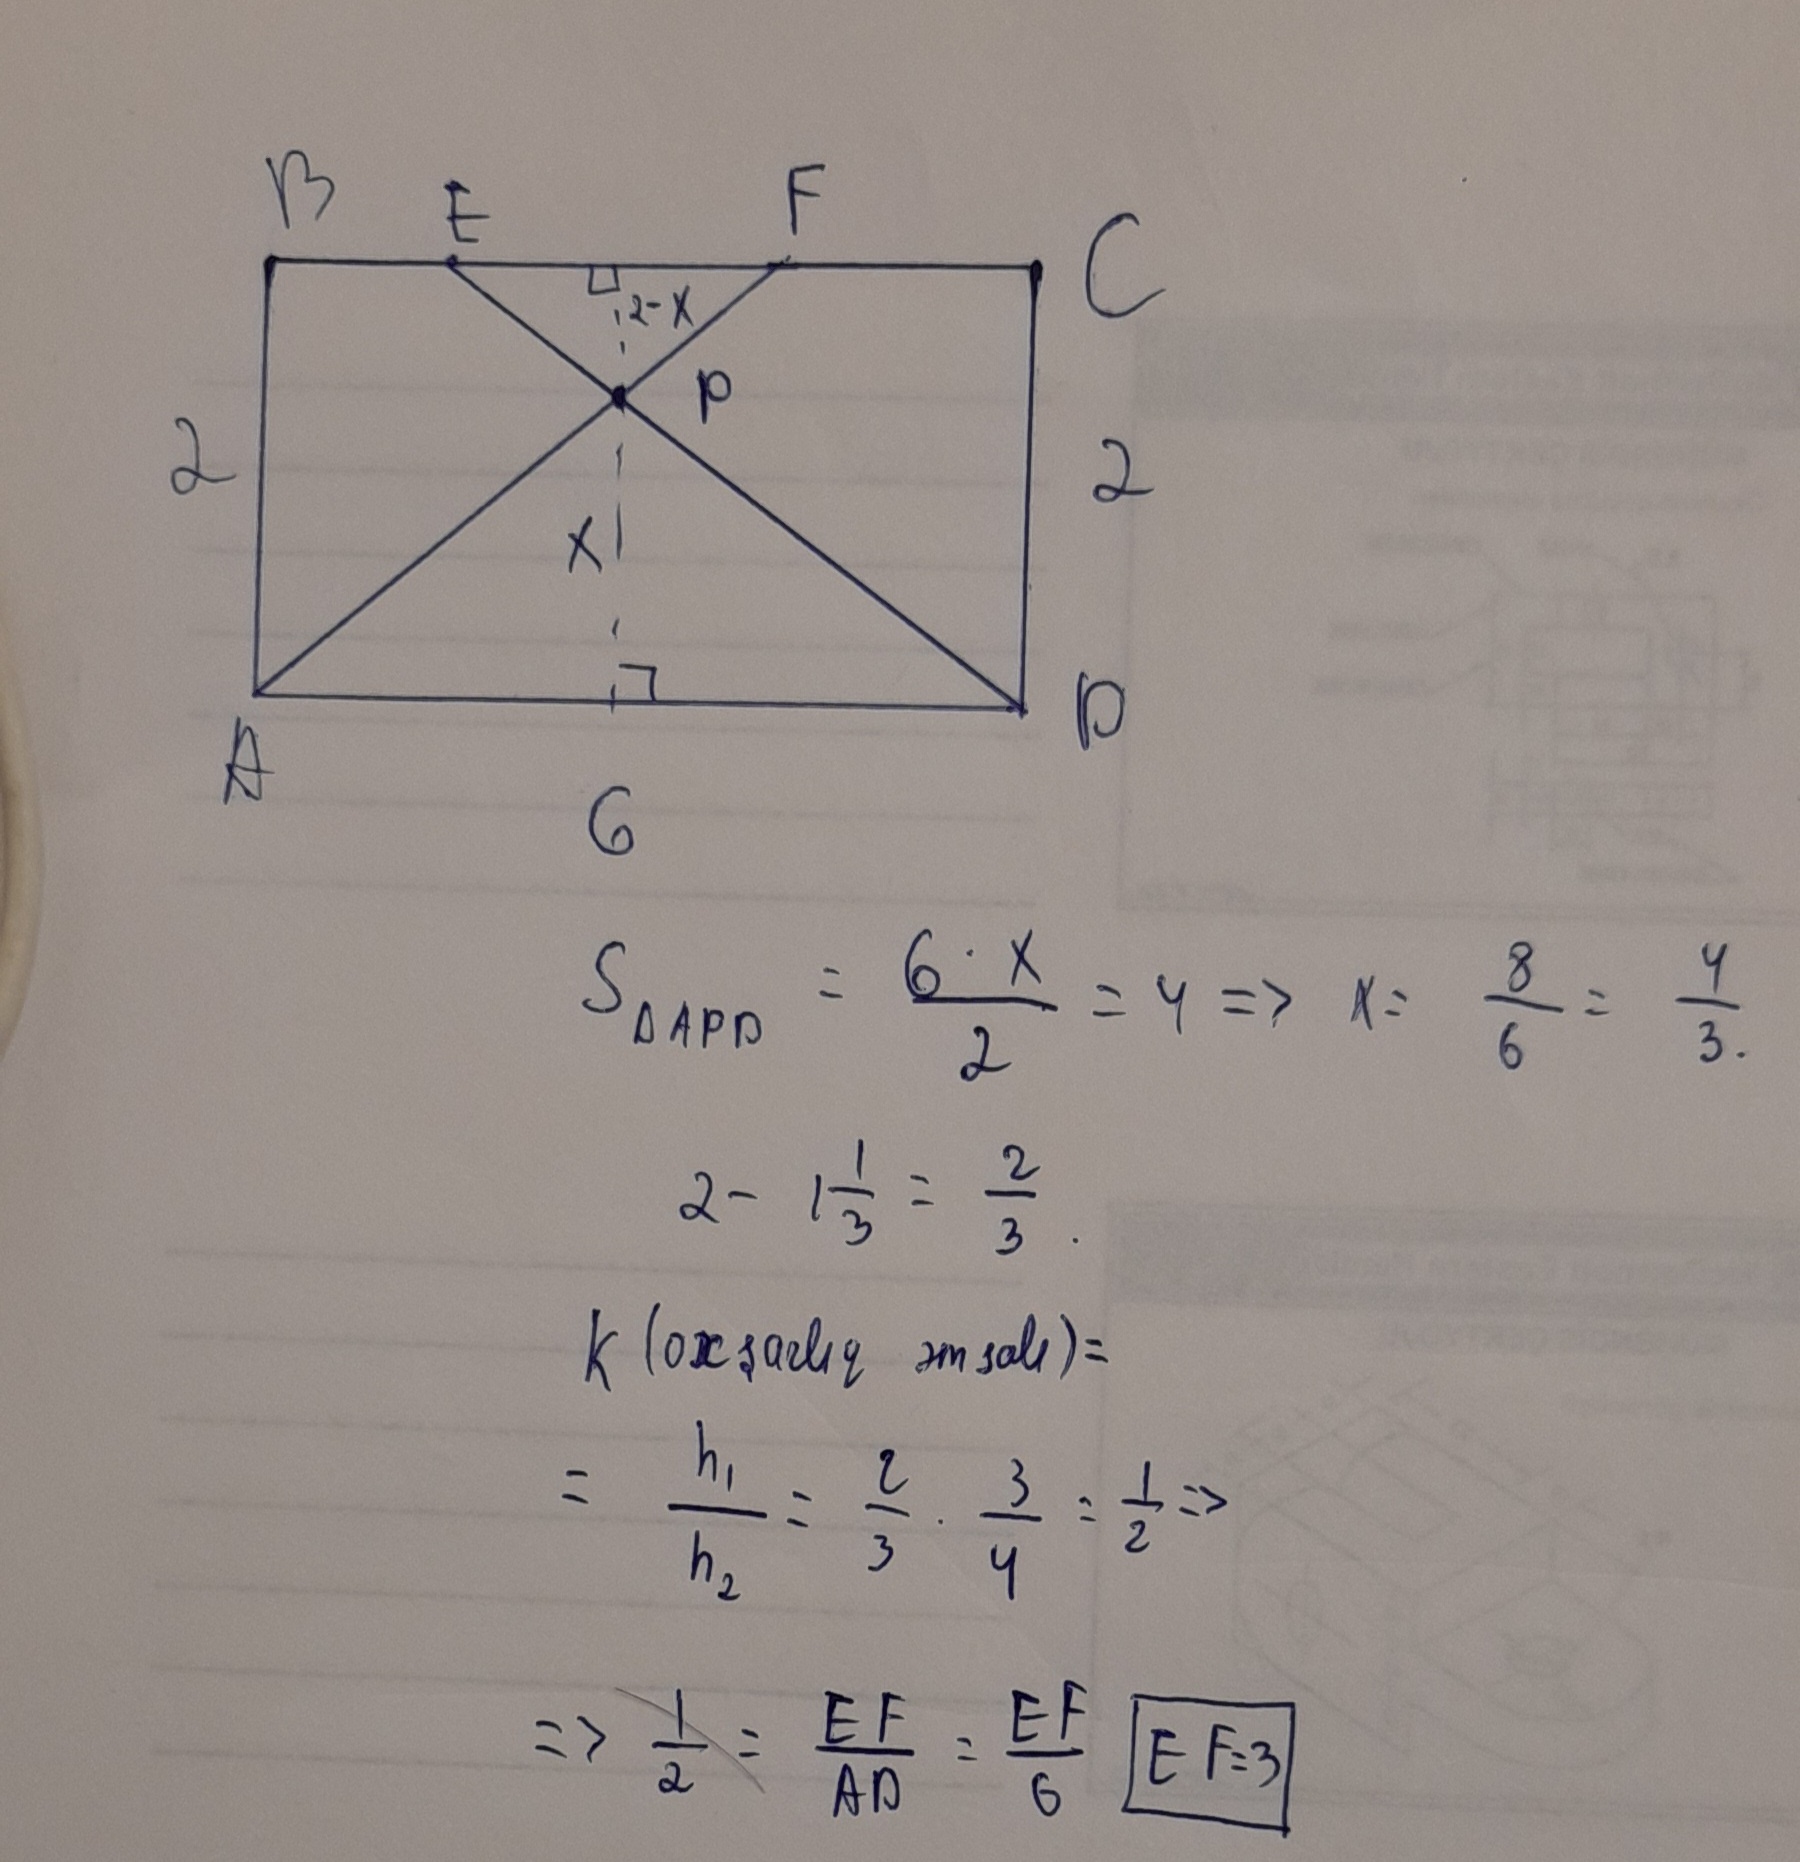 B E F C
2-x
P
2 x 2
A D
6
S△APD = 6·x/2 = 4 => x = 8/6 = 4/3.
2 - 1 1/3 = 2/3.
k (oxşarlıq əmsalı) =
= h₁/h₂ = 2/3 · 3/4 = 1/2 =>
=> 1/2 = EF/AD = EF/6 EF=3